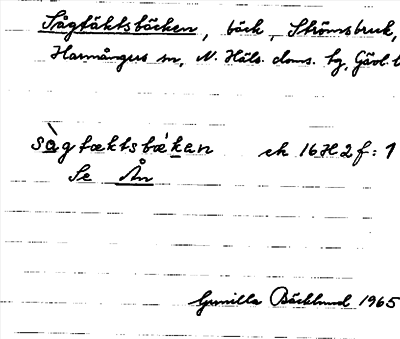 Sågtäktsbäcken, bäck, Strömsbruk,
Harmångers sn, N. Häls. doms. tg, Gävl. l
sågtæktsbækan ek 16H2f:1
Se Ån
Gunilla Bäcklund 1965